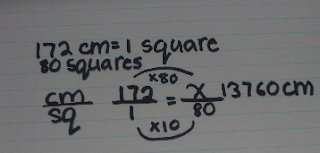 172 cm = 1 square
80 squares
x80
cm/sq 172/1 = x/80 13760 cm
x10